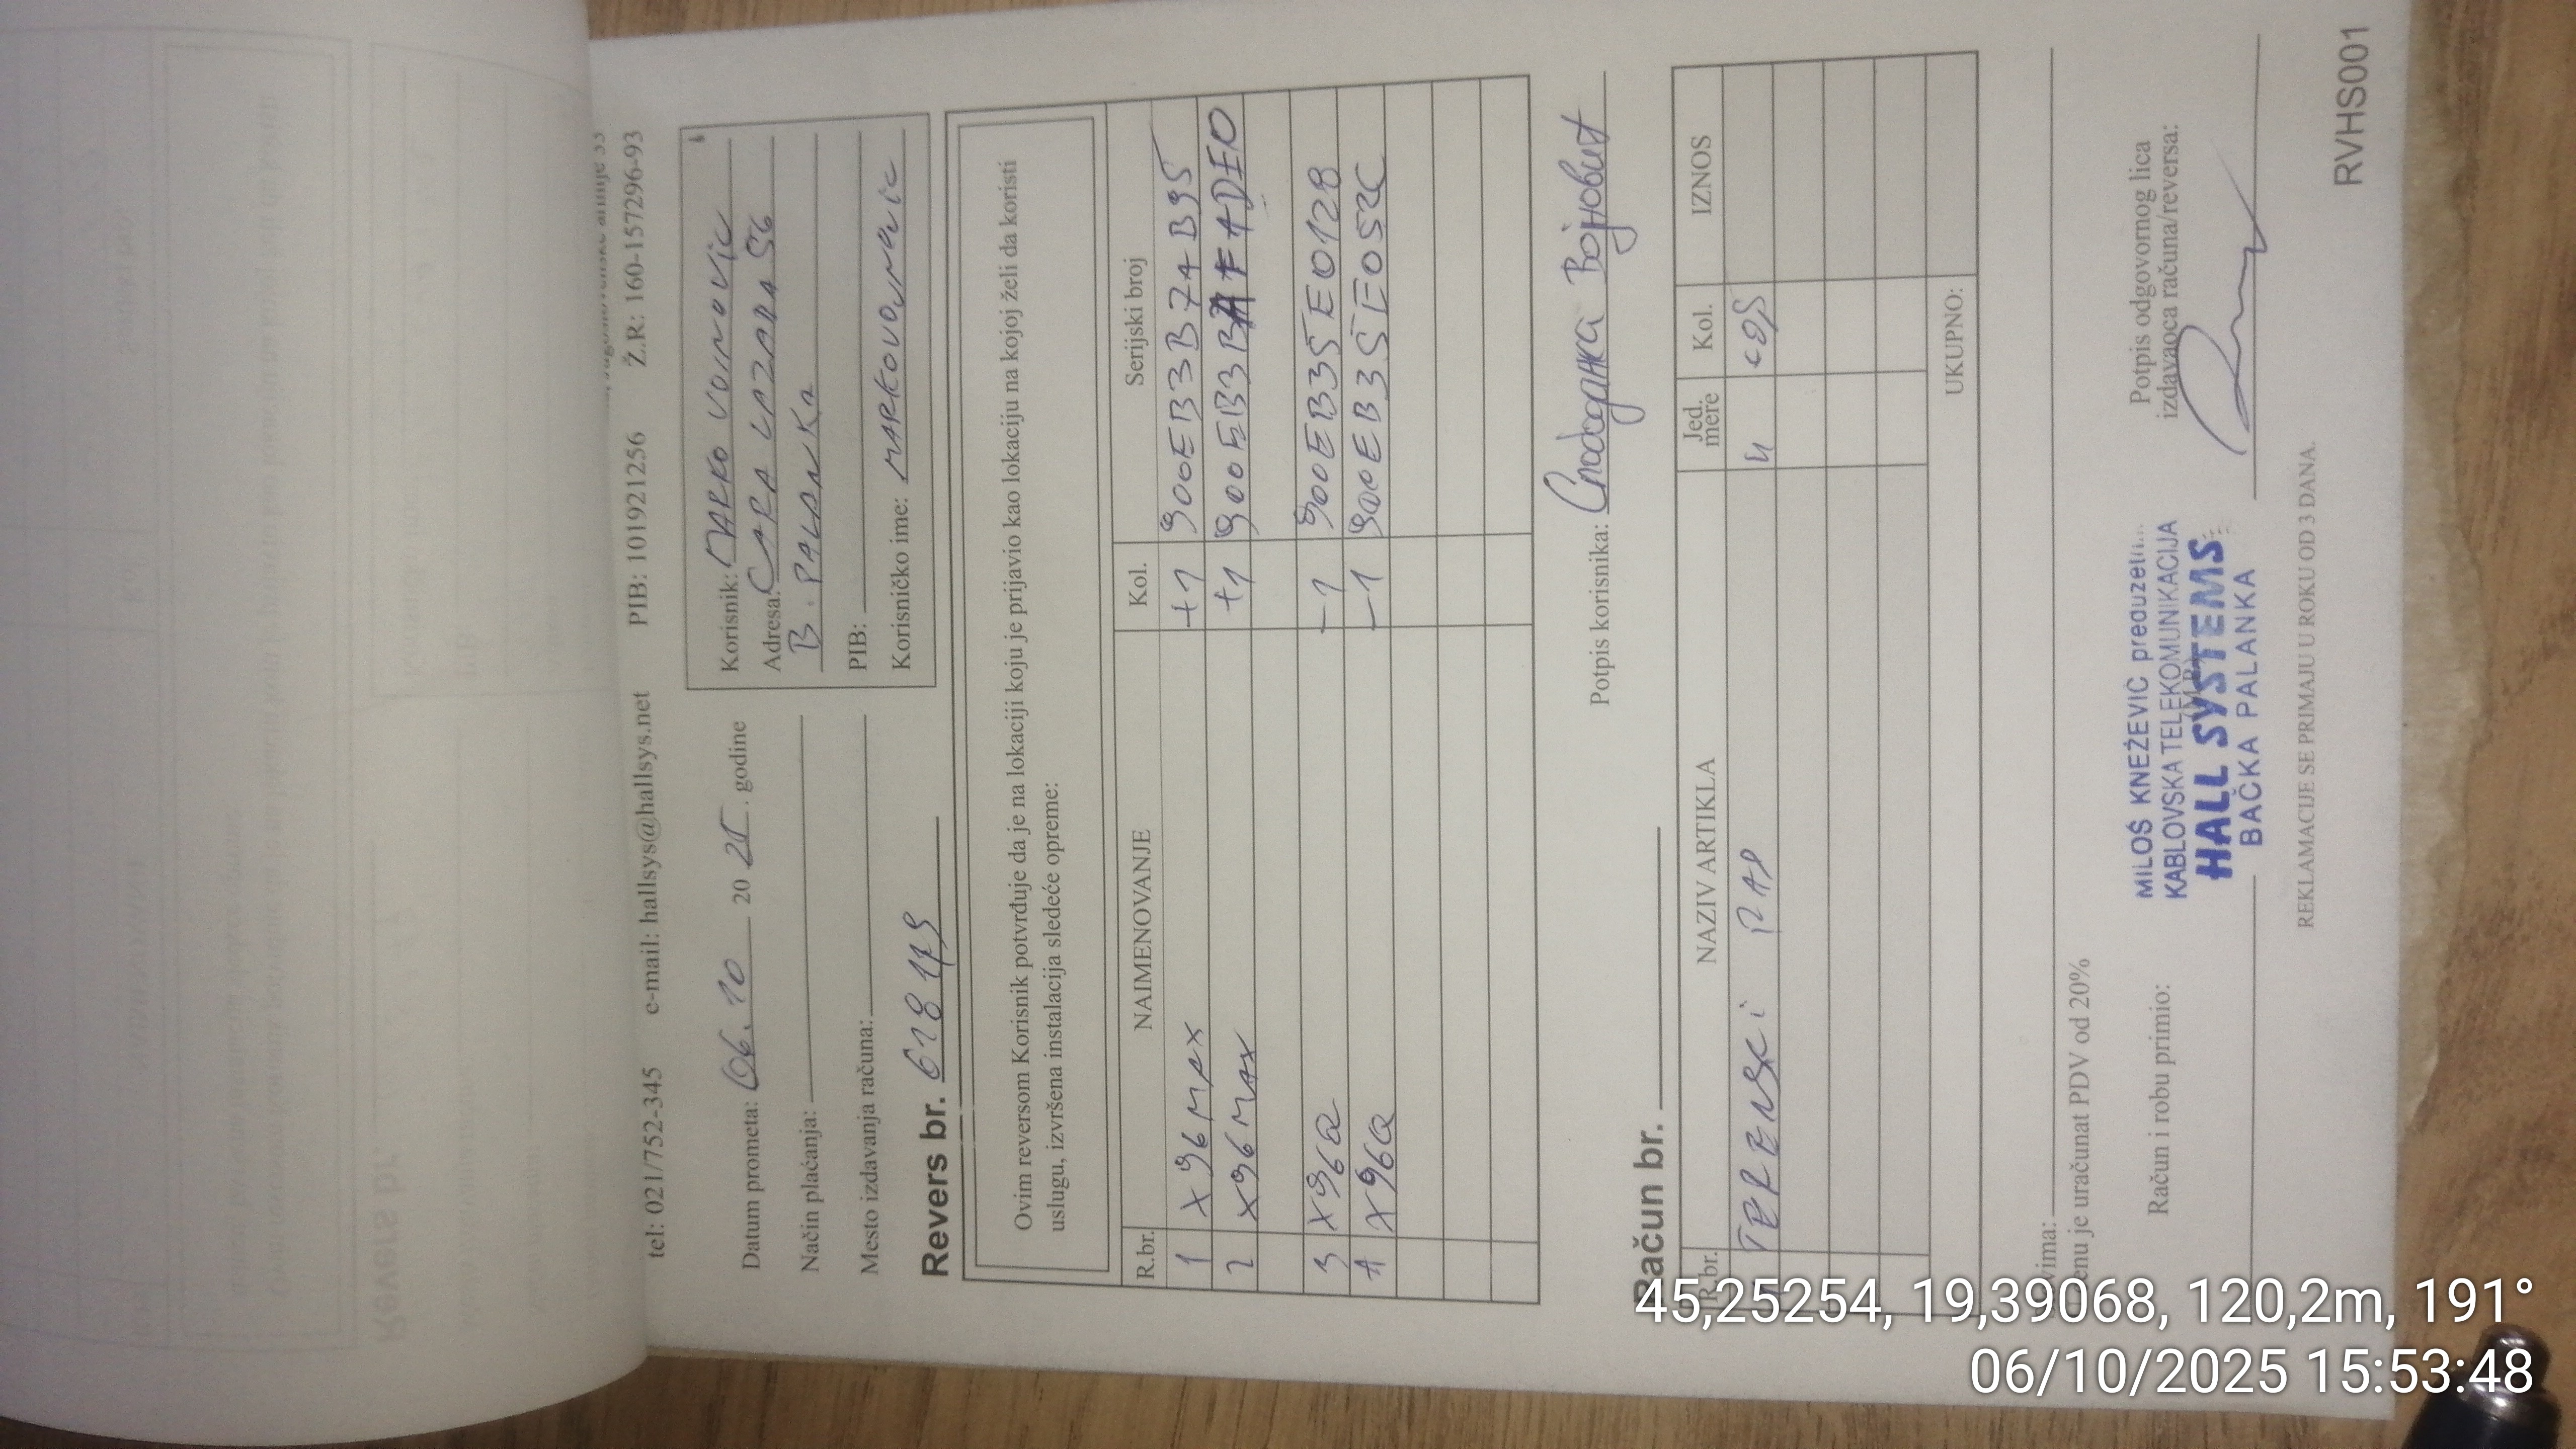 tel: 021/752-345 e-mail: hallsys@hallsys.net PIB: 101921256 Ž.R: 160-1572296-93
Datum prometa: 06.10 20 25. godine
Način plaćanja:
Mesto izdavanja računa:
Korisnik: MARKO VOJNOVIC
Adresa: CARA LAZARA 56
B. PALANKA
PIB:
Korisničko ime: MARKOVOJNOVIC
Revers br. 618 179
Ovim reversom Korisnik potvrđuje da je na lokaciji koju je prijavio kao lokaciju na kojoj želi da koristi
uslugu, izvršena instalacija sledeće opreme:
R.br. NAIMENOVANJE Kol. Serijski broj
1 X96 MAX +1 900EB3B74B95
2 X96 MAX +1 900EB3B
3 X96Q -1 900EB35E0128
4 X96Q -1 900EB35E052C
Potpis korisnika: Слободанка Војновић
Račun br.
R.br. NAZIV ARTIKLA Jed. mere Kol. IZNOS
TERENSKI RAD
UKUPNO:
vima:
enu je uračunat PDV od 20%
Račun i robu primio:
MILOŠ KNEŽEVIĆ
KABLOVSKA TELEKOMUNIKACIJA
HALL SYSTEMS
BAČKA PALANKA
Potpis odgovornog lica
izdavaoca računa/reversa:
REKLAMACIJE SE PRIMAJU U ROKU OD 3 DANA.
RVHS001
45,25254, 19,39068, 120,2m, 191°
06/10/2025 15:53:48